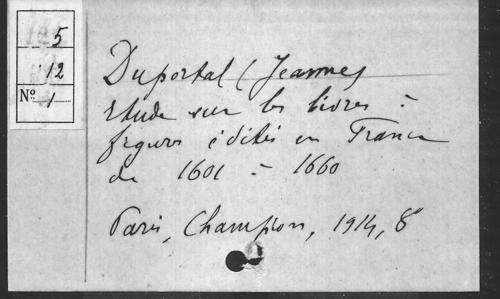 5
12
Nº 1
Duportal (Jeanne)
Etude sur les livres à
figures édités en France
de 1601 à 1660
Paris, Champion, 1914, 8°